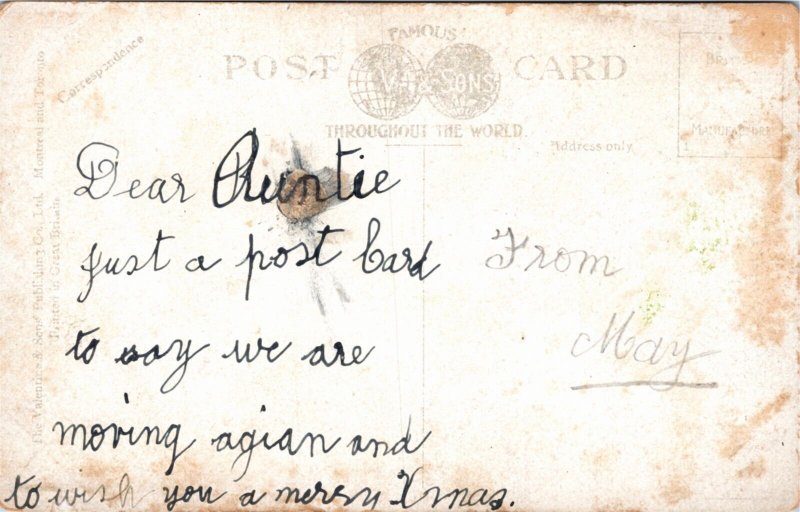 FAMOUS
POST CARD
V & SONS
THROUGHOUT THE WORLD
Correspondence
Address only
The Valentine & Sons' Publishing Co., Ltd. Montreal and Toronto
Printed in Great Britain
Dear Auntie
just a post Card
to say we are
moving agian and
to wish you a merry Xmas.
From
May